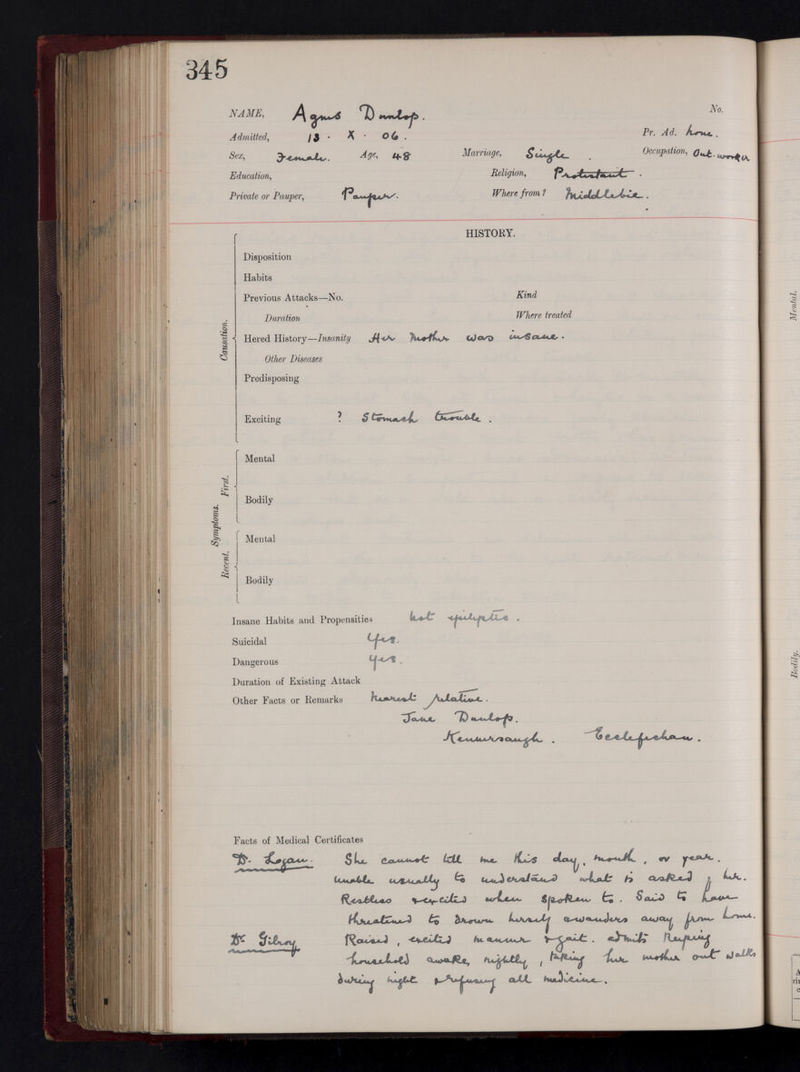 345
NAME, Agnes Dunlop. No.
Admitted, 13 · X · 06. Pr. Ad. home.
Sex, Female. Age, 48 Marriage, Single. Occupation, Out-worker
Education, Religion, Protestant.
Private or Pauper, Pauper. Where from? Middlebie.
HISTORY.
Causation.
Disposition
Habits
Previous Attacks—No. Kind
Duration Where treated
Hered History—Insanity Her Mother was insane.
Other Diseases
Predisposing
Exciting ? Stomach trouble.
Symptoms.
First.
Mental
Bodily
Recent.
Mental
Bodily
Insane Habits and Propensities not epileptic.
Suicidal Yes.
Dangerous Yes.
Duration of Existing Attack
Other Facts or Remarks Nearest relative.
Jane Dunlop.
Ecclefechan.
Facts of Medical Certificates
Dr. Logan. She cannot tell me this day, month, or year.
Unable usually to understand what is asked of her.
Restless & excited when spoken to. Said to have
threatened to drown herself & wanders away from home.
Dr. Gilroy Raised, excited manner & gait. admits keeping
household awake, nightly, taking her mother out walks
during night & refusing all medicine.
Mental.
Bodily.